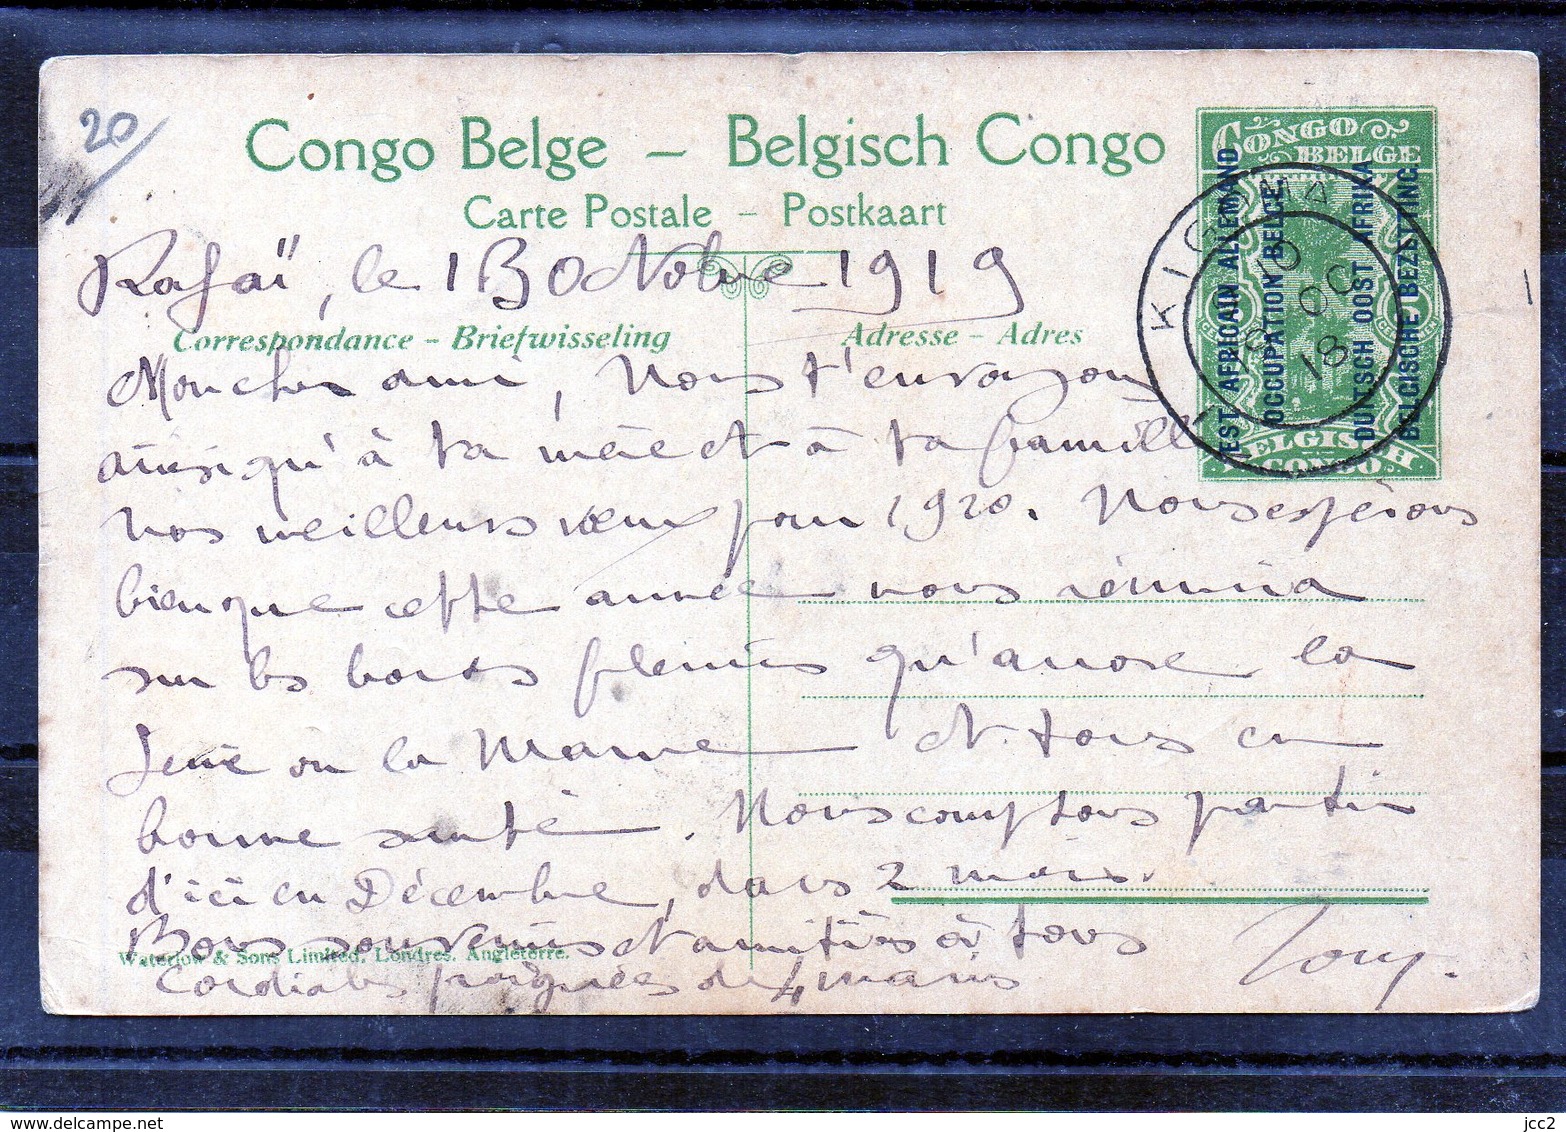 20
Congo Belge – Belgisch Congo
Carte Postale – Postkaart
CONGO BELGE
EST AFRICAIN ALLEMAND
OCCUPATION BELGE
DUITSCH OOST AFRIKA
BELGISCHE BEZETTING.
BELGISCH CONGO
KIGOMA
10
OC
18
Rafaï, le 1919
Correspondance – Briefwisseling
Adresse – Adres
Mon cher ami, Nous t'envoyons
ainsi qu'à ta mère et à ta famille
nos meilleurs vœux pour 1920. Nous espérons
bien que cette année nous réunira
sur les bords fleuris qu'arrose la
Seine ou la Marne et tous en
bonne santé. Nous comptons partir
d'ici en Décembre, dans 2 mois.
Bons souvenirs et amitiés à tous
Waterlow & Sons Limited, Londres, Angleterre.
Cordiales poignées de mains
www.delcampe.net
jcc2